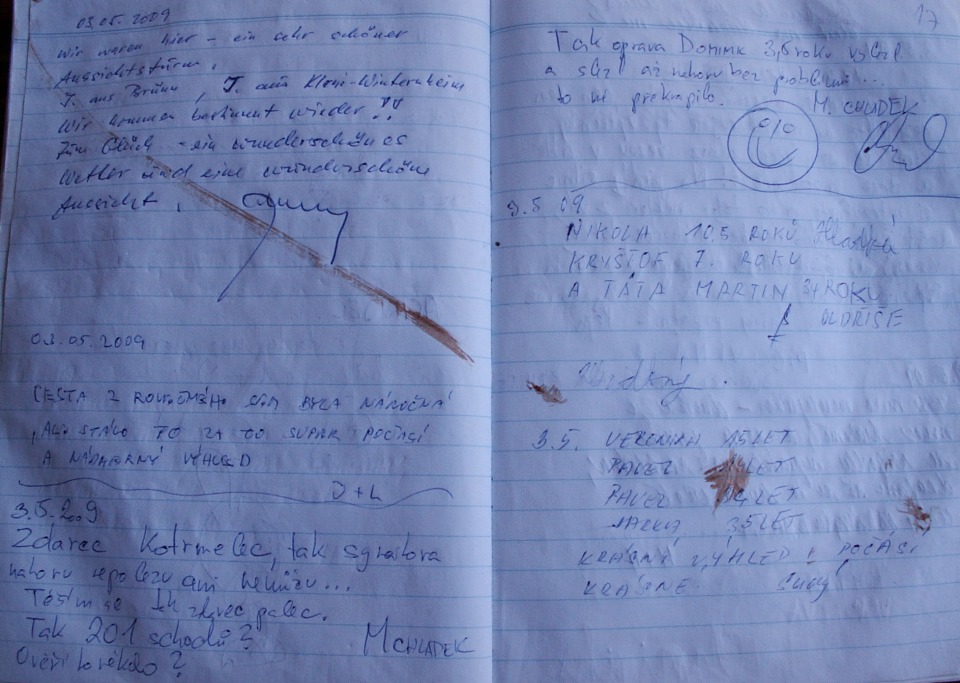 03.05.2009
Wir waren hier – ein sehr schöner
Aussichtsturm.
J. aus Brünn, J. aus Klein-Winternheim
Wir kommen bestimmt wieder!!
Zum Glück - ein wunderschönes
Wetter und eine wunderschöne
Aussicht.
03.05.2009
CESTA Z SEM BYLA NÁROČNÁ
, ALE STÁLO TO ZA TO SUPER POČASÍ
A NÁDHERNÝ VÝHLED
D + L
3.5.2009
Zdarec Kotrmelec, tak
nahoru nepolezu ani nemůžu...
Těším se
Tak 201 schodů?
M CHLADEK
Ověří to někdo?
17
Tak oprava Dominik 3,5 roku vylezl
a slezl až nahoru bez problémů...
to mě překvapilo.
M. CHLADEK
3.5 09
NIKOLA 10,5 ROKŮ
KRYŠTOF 7. ROKU
A TÁTA MARTIN 34 ROKU
OLDŘIŠE
3.5. VERONIKA 15 LET
PAVEL LET
PAVEL LET
35 LET
KRÁSNÝ VÝHLED! POČASÍ
KRÁSNÉ.